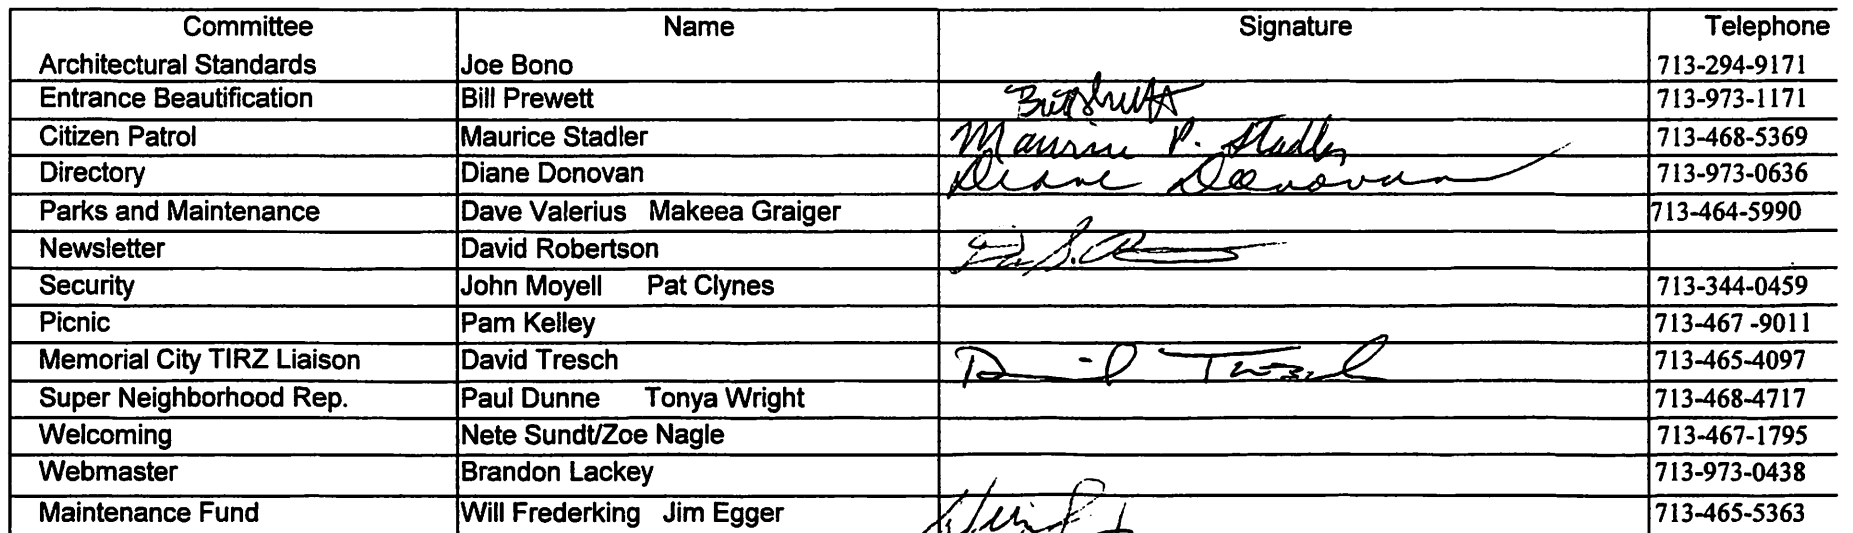 Committee Name Signature Telephone
Architectural Standards Joe Bono 713-294-9171
Entrance Beautification Bill Prewett 713-973-1171
Citizen Patrol Maurice Stadler Maurice P. Stadler 713-468-5369
Directory Diane Donovan Diane Donovan 713-973-0636
Parks and Maintenance Dave Valerius Makeea Graiger 713-464-5990
Newsletter David Robertson
Security John Moyell Pat Clynes 713-344-0459
Picnic Pam Kelley 713-467 -9011
Memorial City TIRZ Liaison David Tresch David Tresch 713-465-4097
Super Neighborhood Rep. Paul Dunne Tonya Wright 713-468-4717
Welcoming Nete Sundt/Zoe Nagle 713-467-1795
Webmaster Brandon Lackey 713-973-0438
Maintenance Fund Will Frederking Jim Egger 713-465-5363